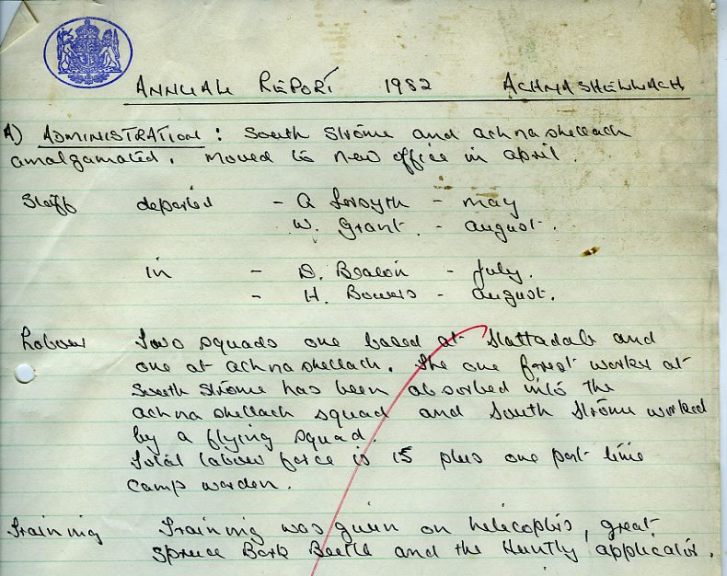 ANNUAL REPORT 1982 ACHNASHELLACH
A) ADMINISTRATION : South Strome and achnashellach
amalgamated. Moved to new office in april.
Staff departed - A Forsyth - may
W. Grant - august.
in - D. Beaton - July.
- H. Bowers - august.
Labour Two squads one based at Slattadale and
one at achnashellach. The one forest worker at
South Strome has been absorbed into the
achnashellach squad and South Strome worked
by a flying squad.
Total labour force is 15 plus one part time
camp warden.
Training Training was given on helicopters, great
Spruce Bark Beetle and the Huntly applicator.